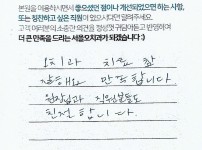 본원을 이용하시면서 좋으셨던 점이나 개선되었으면 하는 사항,
또는 칭찬하고 싶은 직원이 있으시다면 알려주세요.
고객 여러분의 소중한 의견을 경청하여 귀담아듣고 반영하여
더 큰 만족을 드리는 서울오치과가 되겠습니다 :)
오치과 치료 잘
잘해요 만족합니다
원장님과 직원분들도
친절합니다.